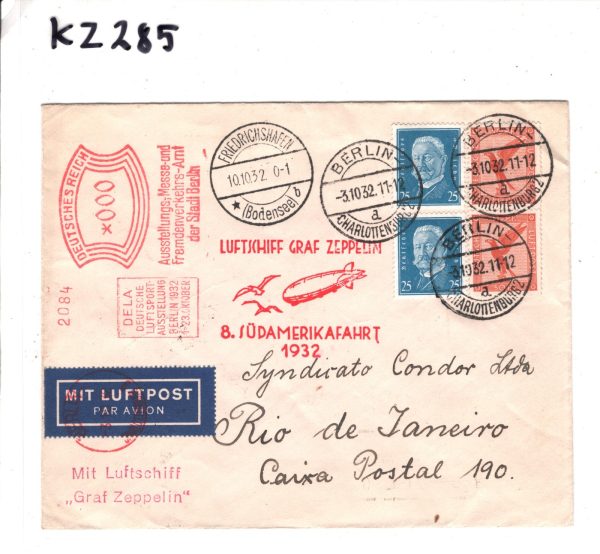 KZ 285
DEUTSCHES REICH
*000
Ausstellungs-, Messe- und
Fremdenverkehrs-Amt
der Stadt Berlin
2084
DELA
DEUTSCHE
LUFTSPORT-
AUSSTELLUNG
BERLIN 1932
1.-23. OKTOBER
FRIEDRICHSHAFEN
10.10.32. 0-1
* (Bodensee) b
BERLIN-
-3.10.32.11-12
a
CHARLOTTENBURG 2
25 25
BERLIN-
-3.10.32.11-12
a
CHARLOTTENBURG 2
BERLIN-
-3.10.32.11-12
a
CHARLOTTENBURG 2
25 25
LUFTSCHIFF GRAF ZEPPELIN
8. SÜDAMERIKAFAHRT
1932
MIT LUFTPOST
PAR AVION
Mit Luftschiff
„Graf Zeppelin"
Syndicato Condor Ltda
Rio de Janeiro
Caixa Postal 190.